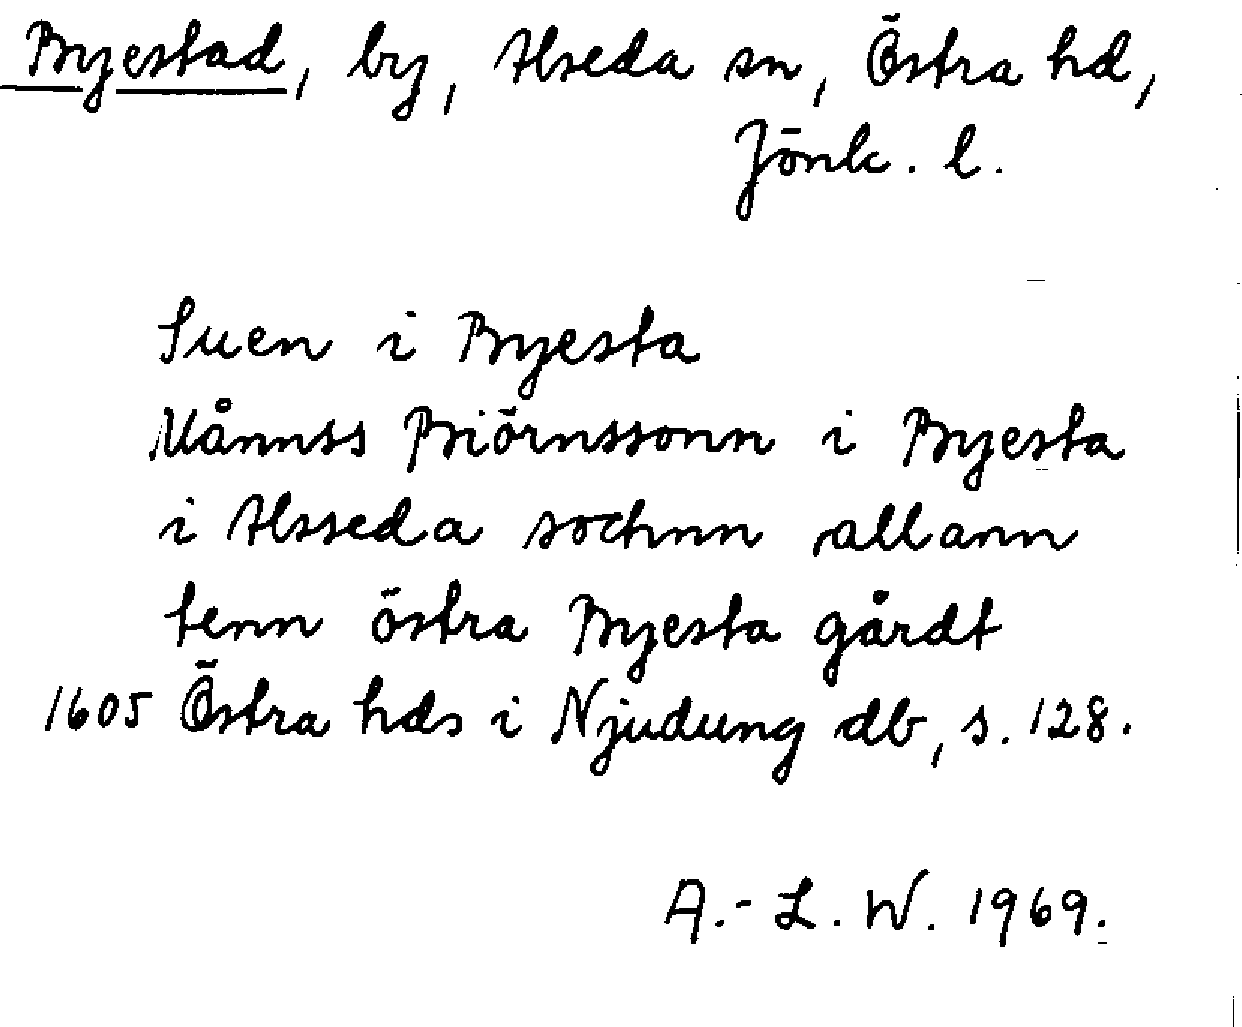 Byestad, by, Alseda sn, Östra hd,
Jönk. l.
Suen i Byesta
Månnss Biörnssonn i Byesta
i Alsseda sochnn allann
tenn östra Byesta gårdt
1605 Östra hds i Njudung db, s. 128.
A.-L. W. 1969.